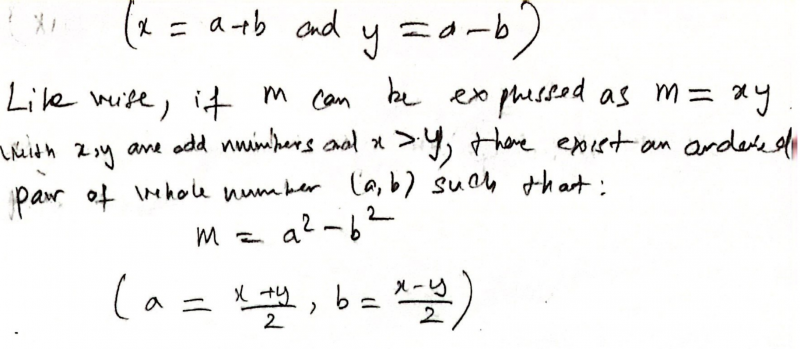 (x = a+b and y = a-b)
Like wise, if m can be expressed as m = xy
with x,y are odd numbers and x > y, there exist an ordered
pair of whole number (a,b) such that:
m = a² - b²
(a = x+y/2, b = x-y/2)